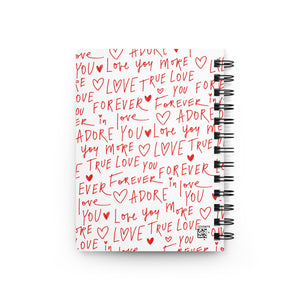 ADORE
YOU ♥ Love you MORE ♡ LO
♡ LOVE TRUE LOVE
LOVE YOU
FOREVER ♥ Forever
in love
ADORE YOU ♥
Love you MORE ♡ LOVE
LOVE TRUE LOVE YOU
EVER FOREVER in love
♥ ♡ ADORE
YOU ♥ Love you MORE ♡
♡ LOVE TRUE LOVE
LOVE in YOU FOREVER